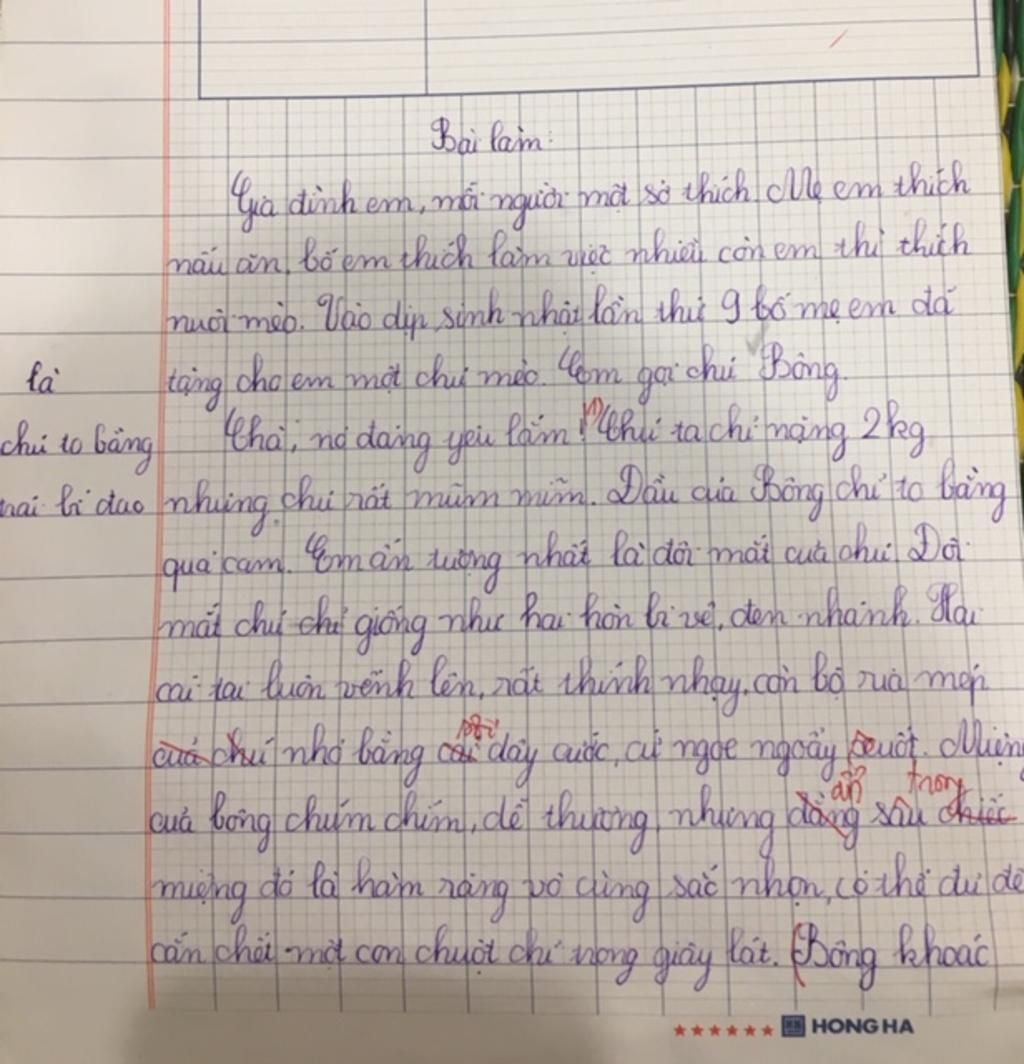 Bài làm:
Gia đình em, mỗi người một sở thích. Mẹ em thích
nấu ăn, bố em thích làm việc nhiều còn em thì thích
nuôi mèo. Vào dịp sinh nhật lần thứ 9 bố mẹ em đã
là
tặng cho em một chú mèo. Em gọi chú Bông.
chú to bằng
Chà, nó đáng yêu lắm! Chú ta chỉ nặng 2kg
bí đao
nhưng chú rất mũm mĩm. Đầu của Bông chỉ to bằng
quả cam. Em ấn tượng nhất là đôi mắt của chú. Đôi
mắt chú chỉ giống như hai hòn bi ve, đen nhánh. Hai
cái tai luôn vểnh lên, rất thính nhạy, còn bộria mép
của chú nhỏ bằng dây cước, cứ ngoe ngoẩy suốt. Miệng
ẩn trong
của bông chúm chím, dễ thương, nhưng đằng sâu chiếc
miệng đó là hàm răng vô cùng sắc nhọn, có thể đủ để
cắn chết một con chuột chỉ trong giây lát. Bông khoác
HONG HA